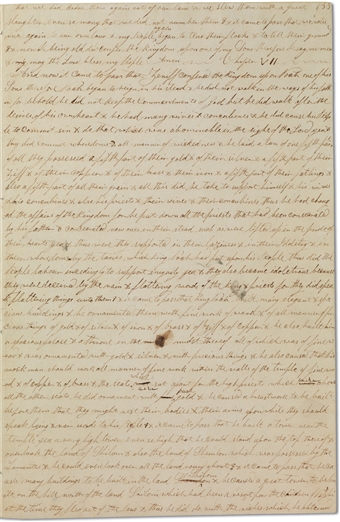 that we did drive them again out of our land & we slew them with a great
slaughter even so many that we did not number them & it came to pass that we returned
again to our own land & my People again began to tend their flocks & to till their ground
& now I being old did confer the Kingdom upon one of my Sons therefore I say no more
& may the Lord bless my People Amen Chapter VII
& now it came to pass that Zeniff confered the Kingdom upon Noah one of his
Sons therefore Noah began to reign in his stead & he did not walk in the ways of his father
for behold he did not keep the commandments of God but he did walk after the
desires of his own heart & he had many wives & concubines & he did cause his People
to commit sin & do that which was abominable in the sight of the Lord yea &
they did commit whoredoms & all manner of wickedness & he laid a tax of one fifth part
of all they possessed a fifth part of their gold & of their silver & a fifth part of their
ziff & of their copper & of their brass & their iron & a fifth part of their fatlings &
also a fifth part of all their grain & all this did he take to support himself & his wives
& his concubines & also his priests & their wives & their concubines thus he had changed
the affairs of the Kingdom for he put down all the priests that had been consecrated
by his father & consecrated new ones in their stead such as were lifted up in the pride of
their hearts yea & thus were they supported in their laziness & in their idolatry & in
their whoredoms by the taxes which King Noah had put upon his People thus did the
People labour exceedingly to support iniquity yea & they also became idolatrous because
they were deceived by the vain & flattering words of the King & priests for they did speak
flattering things unto them & it came to pass that King Noah built many elegant & spacious
buildings & he ornamented them with fine work of wood & of all manner of
precious things of gold & of silver & of iron & of brass & of ziff & of copper & he also built him
a spacious palace & a throne in the midst thereof all of which was of fine wood
& was ornamented with gold & silver & with precious things & he also caused that his
workmen should work all manner of fine work within the walls of the temple of fine wood
& of copper & of brass & the seats which was set apart for the high priests which was above
all the other seats he did ornament with pure gold & he caused a breastwork to be built
before them that they might rest their bodies & their arms upon while they should
speak lying & vain words to his People & it came to pass that he built a tower near the
temple yea a very high tower even so high that he could stand upon the top thereof &
overlook the land of Shilom & also the land of Shemlon which was possessed by the
Lamanites & he could even look over all the land round about & it came to pass that he caused
many buildings to be built in the land Shilom & he caused a great tower to be built
on the hill north of the land Shilom which had been a resort for the children of Nephi
at the time they fled out of the land & thus he did do with the riches which he obtained